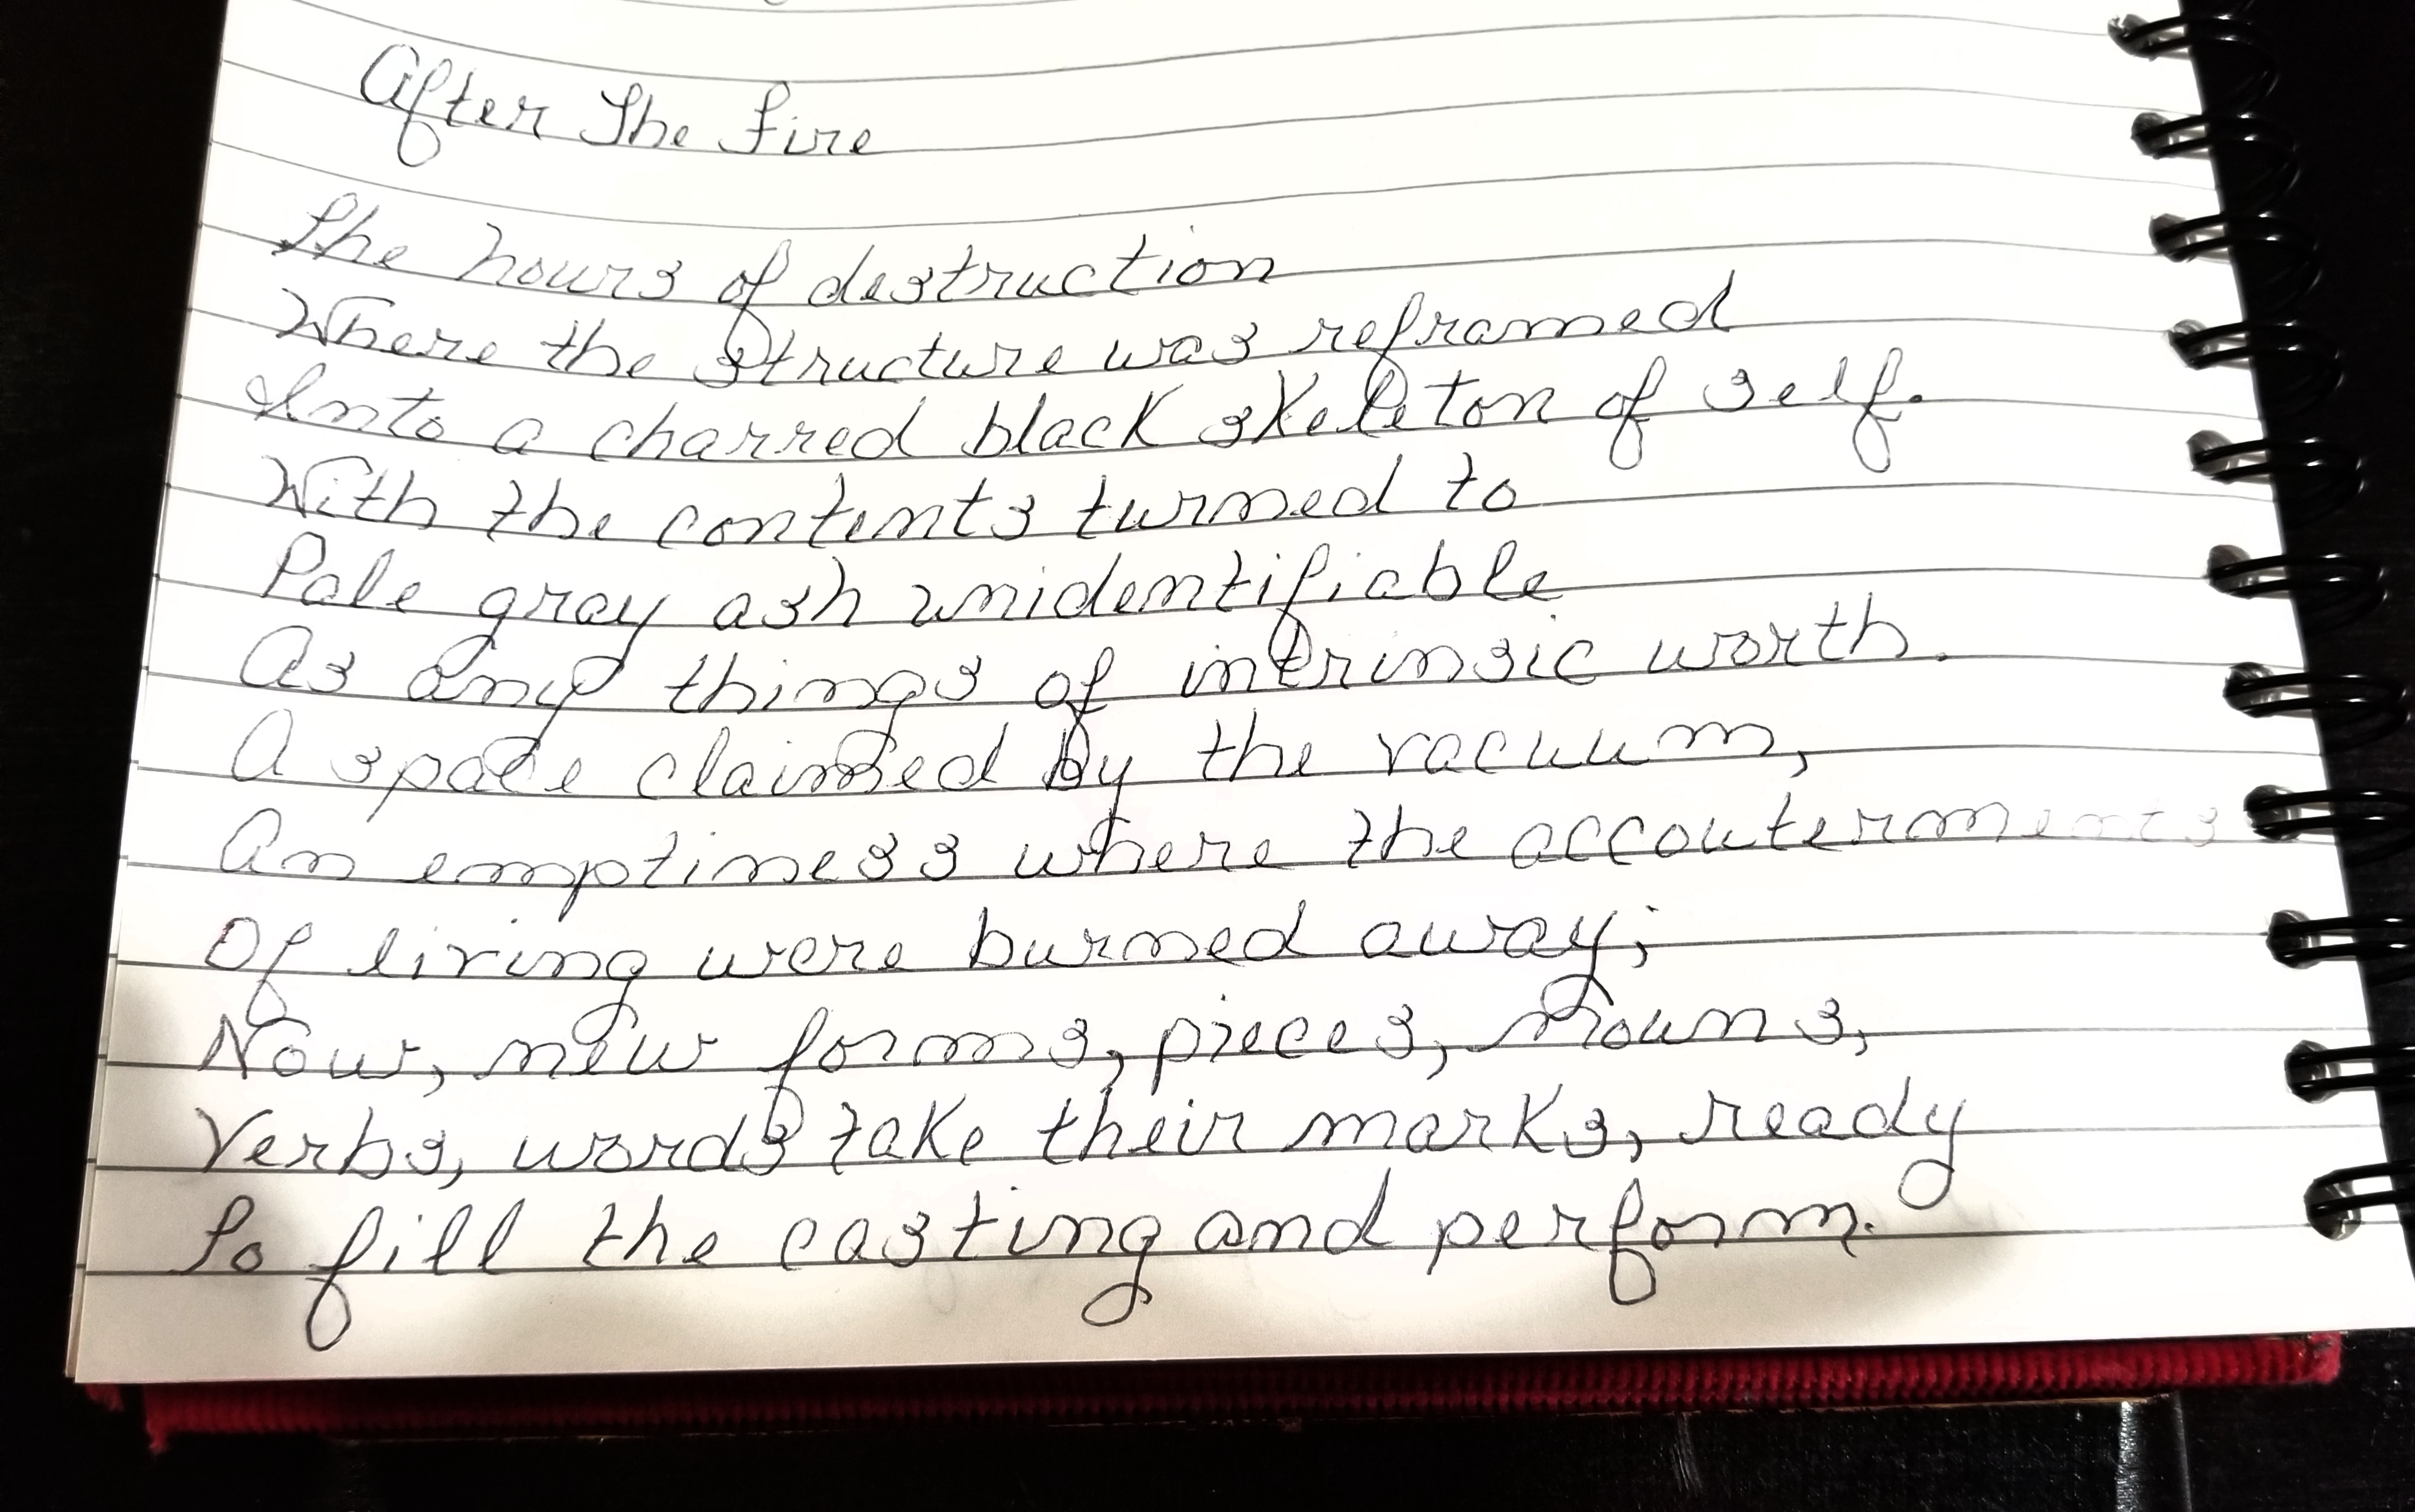 After The Fire
The hours of destruction
Where the structure was reframed
Into a charred black skeleton of self.
With the contents turned to
Pale gray ash unidentifiable
As any things of intrinsic worth.
A space claimed by the vacuum,
An emptiness where the accouterments
Of living were burned away;
Now, new forms, pieces, nouns,
Verbs, words take their marks, ready
To fill the casting and perform.